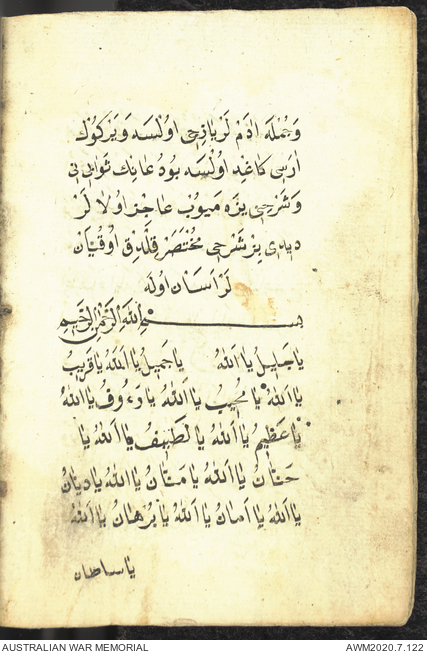 وَجُمْلَه اٰدَمْ لَرْ يَازِجِى اوُلْسَه وَيَرْكُوكْ
اَرَسِى كَاغِدْ اوُلْسَه بُودُعَانِكْ ثَوَابِنِى
وَشَرْحِنِى يَزَه مَيُوبْ عَاجِزْ اوُلَا لَرْ
دِيدِى بِزْ شَرْحِى مُخْتَصَرْ قِلْدِقْ اوُقُيَانْ
لَرْ اٰسَانْ اوُلَه
بِسْمِ اللّٰهِ الرَّحْمٰنِ الرَّحِيمِ
يَاجَلِيلُ يَا اَللّٰهُ يَاجَمِيلُ يَا اَللّٰهُ يَاقَرِيبُ
يَا اَللّٰهُ يَا مُجِيبُ يَا اَللّٰهُ يَا رَءُوفُ يَا اَللّٰهُ
يَا عَظِيمُ يَا اَللّٰهُ يَا لَطِيفُ يَا اَللّٰهُ يَا
حَنَّانُ يَا اَللّٰهُ يَا مَنَّانُ يَا اَللّٰهُ يَا دَيَّانُ
يَا اَللّٰهُ يَا اَمَانُ يَا اَللّٰهُ يَا بُرْهَانُ يَا اَللّٰهُ
يا سلطان
AUSTRALIAN WAR MEMORIAL AWM2020.7.122